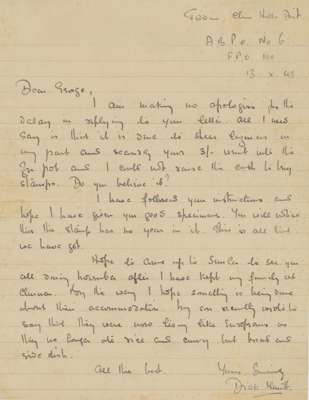 From Chin Hills Brit.
A B P O No 6
F P O No
13 X 45
Dear George,
I am making no apologies for the
delay in replying to your letter. All I need
say is that it is due to sheer laziness on
my part and secondly your 5/- went into the
pot and I could not raise the cash to buy
stamps. Do you believe it?
I have followed your instructions and
hope I have given you good specimens. You will notice
that this stamp has no year in it. This is all that
we have got.
Hope to come up to Simla to see you
all during November after I have kept my family at
Chunar. By the way I hope something is being done
about their accommodation. My son recently wrote to
say that they were now living like Europeans as
they no longer do rice and curry but bread and
side dish.
All the best. Yours Sincerely
Dick